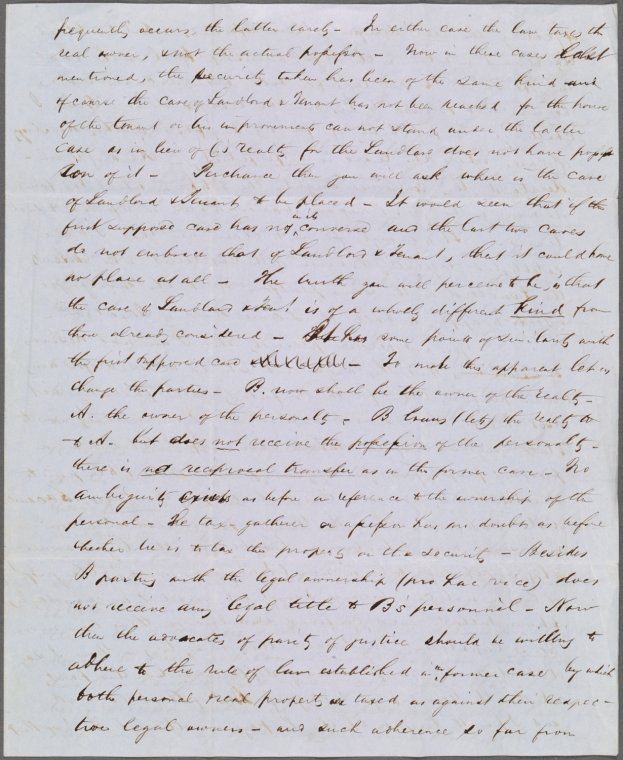 frequently occurs, the latter rarely - In either case the law taxes the
real owner, & not the actual possessor - Now in these cases last
mentioned, the security taken has been of the same kind and
of course the case of Landlord & Tenant has not been reached for the house
of the tenant or his improvements can not stand under the latter
case as in lieu of (s) realty for the Landlord does not have posses
sion of it - Perchance then you will ask where is the case
of Landlord & Tenant to be placed - It would seem that if the
first supposed case has not in its converse and the last two cases
do not embrace that of Landlord & Tenant, that it could have
no place at all - The truth you will perceive to be, is that
the case of Landlord & Tent is of a wholly different kind from
those already considered - It has some points of similarity with
the first supposed case - To make this apparent let us
change the parties - B. now shall be the owner of the realty -
A. the owner of the personalty - B loans (lets) the realty to
to A. but does not receive the possession of the personalty -
there is no reciprocal transfer as in the former case - No
ambiguity exists as before in reference to the ownership of the
personal - The tax-gatherer or assessor has no doubts as before
whether he is to tax the property or the security - Besides
B parting with the legal ownership (pro hac vice) does
not receive any legal title to B's personal - Now
then the advocates of parity of justice should be willing to
adhere to the rule of law established in former case by which
both personal & real property is taxed as against their respec-
tive legal owners - and such adherence so far from